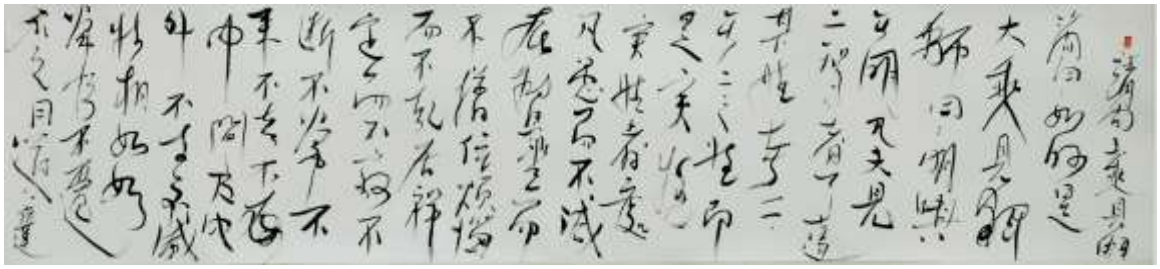 簡曰如何是
大乘見解
師曰明與
无明凡夫見
二智者了達
其性无二
无二之性即
是實性
實性者處
凡愚而不減
在賢聖而
不增住煩惱
而不亂居禪
定而不寂不
斷不常不
來不去不在
中間及内
外不生不滅
性相如如
常住不遷
名之曰道